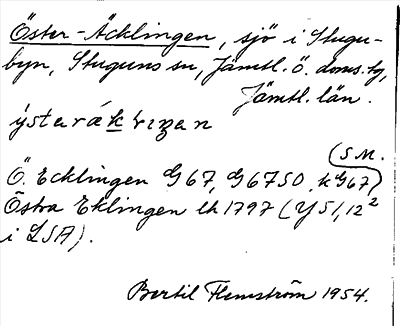 Öster-Äcklingen, sjö i Stugu-
byn, Stuguns sn, Jämtl. ö. doms.tg,
Jämtl. län.
(S.M.
Ö. Ecklingen G67, G67SO, kG67)
Östra Eklingen lh 1797 (Y51,12²
i LSA).
Bertil Flemström 1954.